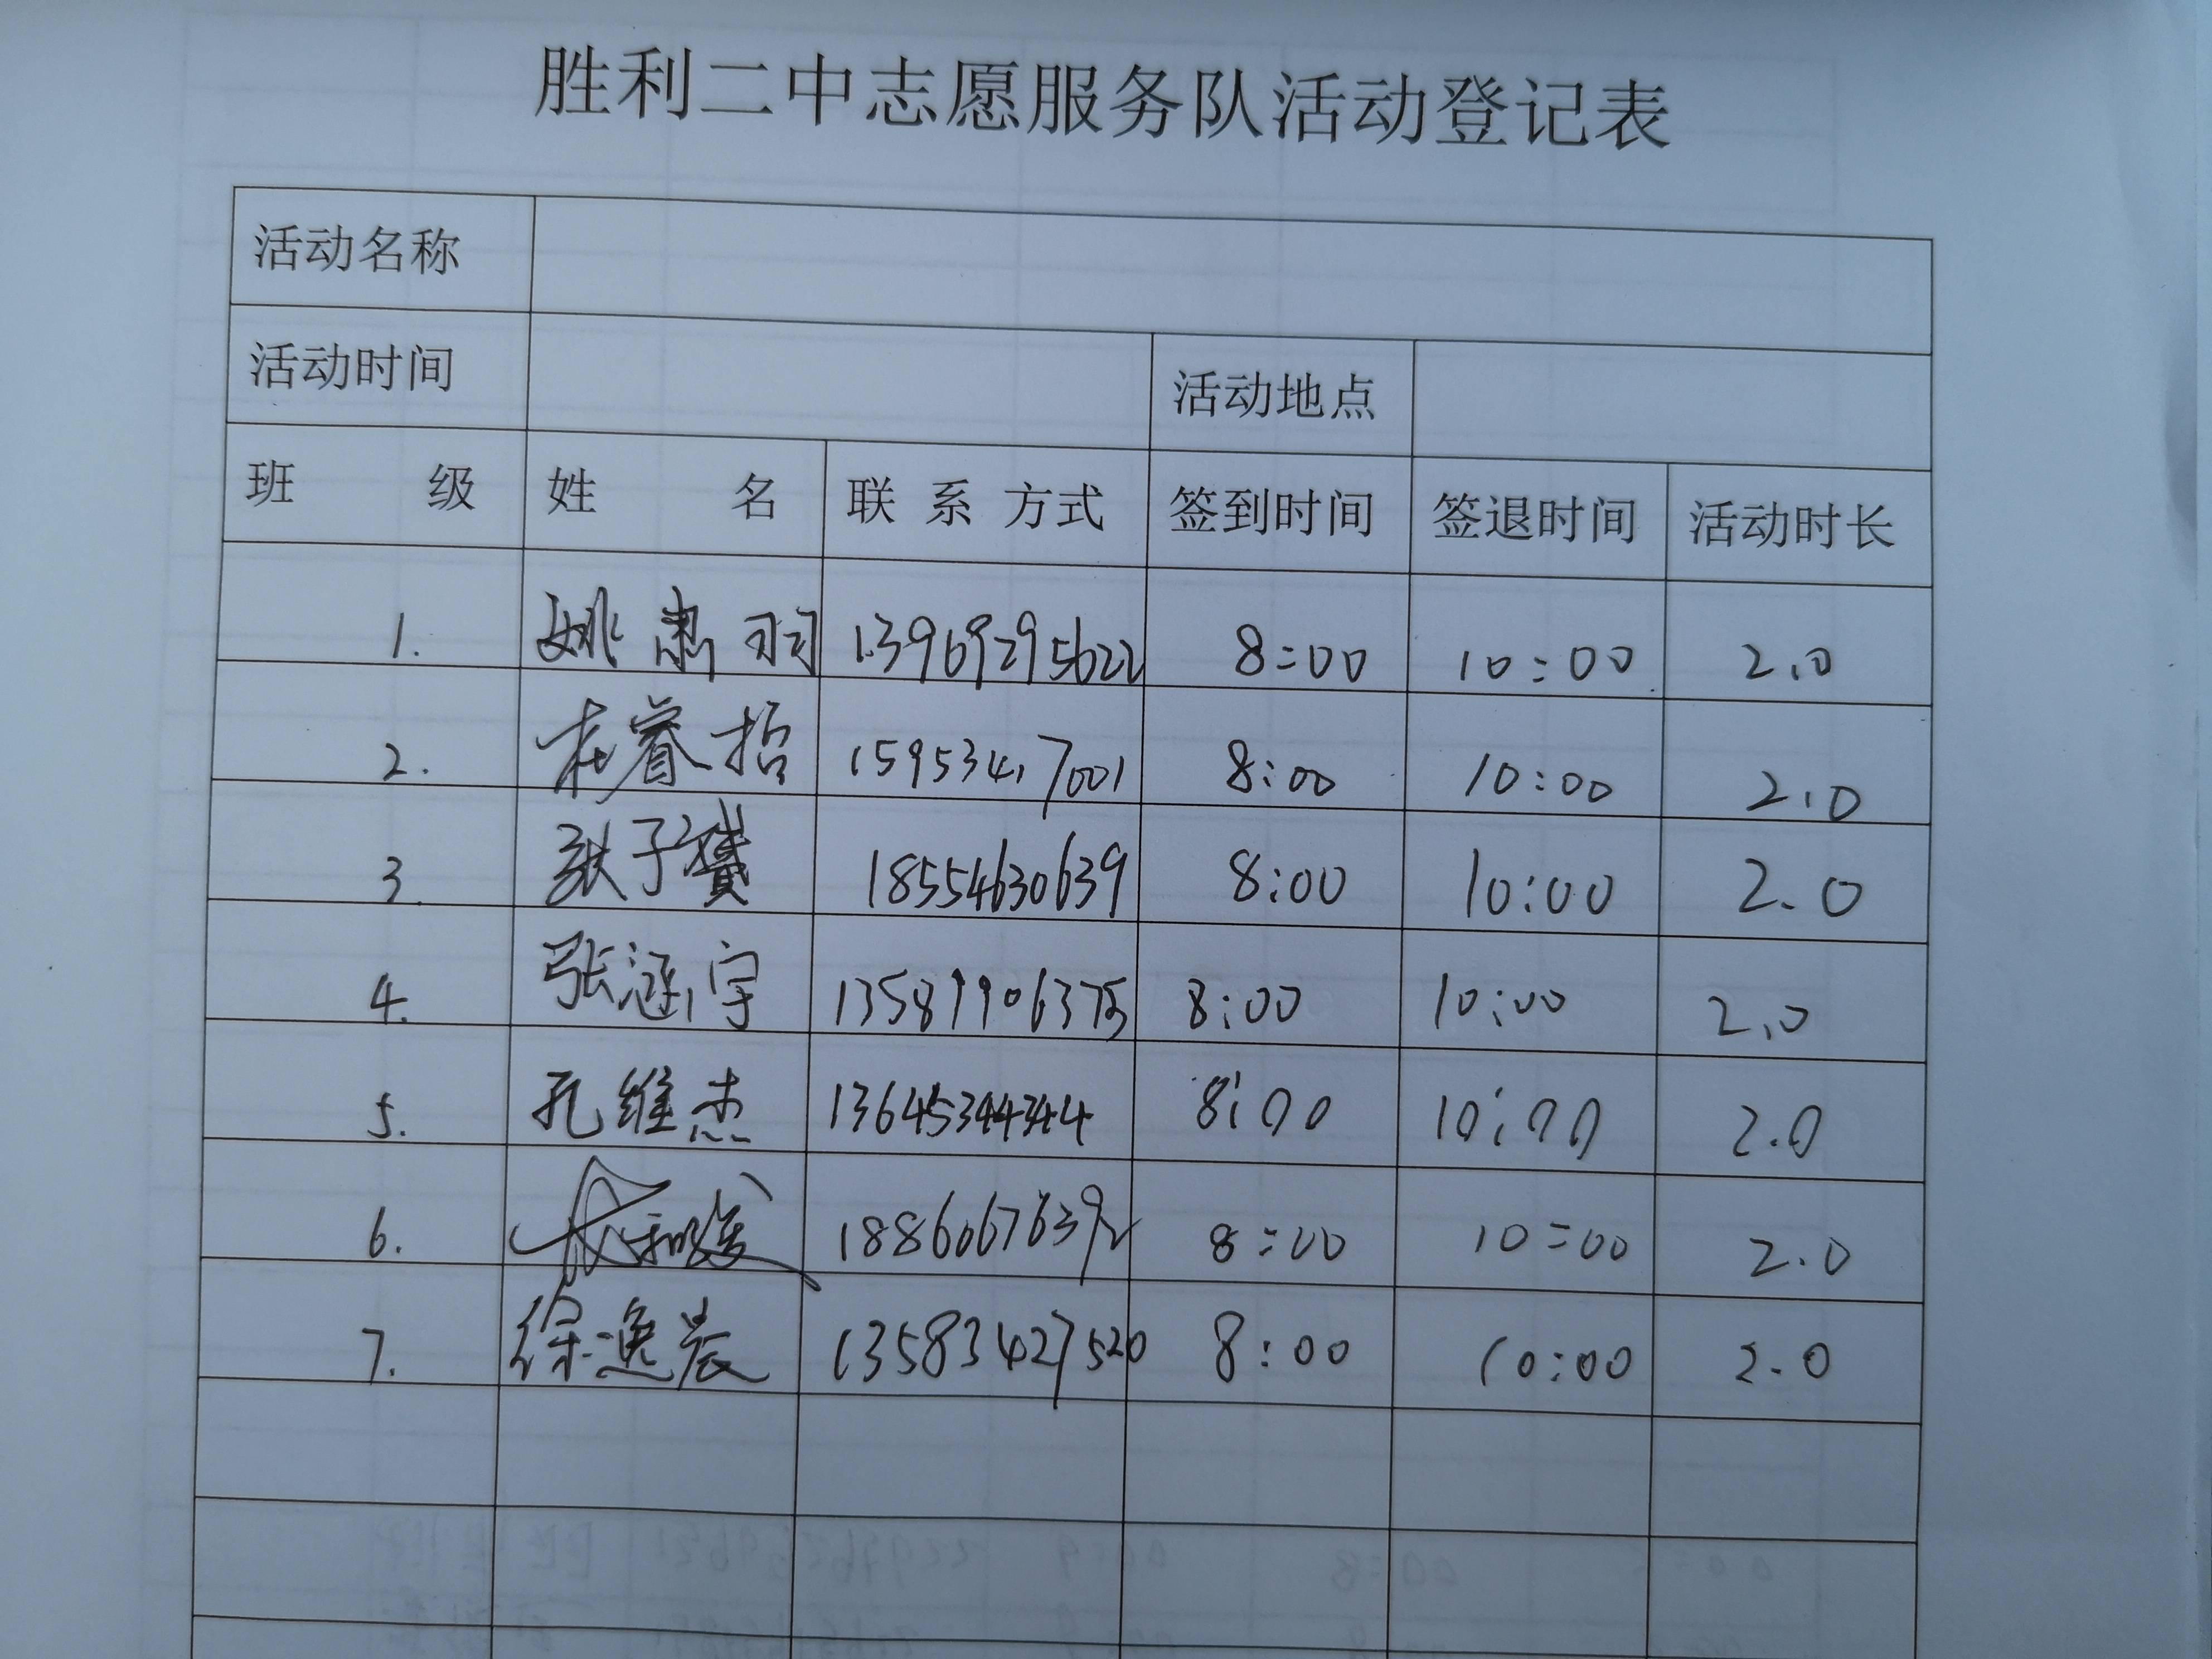 胜利二中志愿服务队活动登记表
活动名称
活动时间 活动地点
班 级 姓 名 联系方式 签到时间 签退时间 活动时长
1. 姚肃羽 13969295622 8:00 10:00 2.0
2. 睿哲 15953417001 8:00 10:00 2.0
3. 子 18554630639 8:00 10:00 2.0
4. 张涵宇 8:00 10:00 2.0
5. 孔维杰 13645344344 8:00 10:00 2.0
6. 18860676392 8:00 10:00 2.0
7. 徐逸晨 13583427520 8:00 10:00 2.0